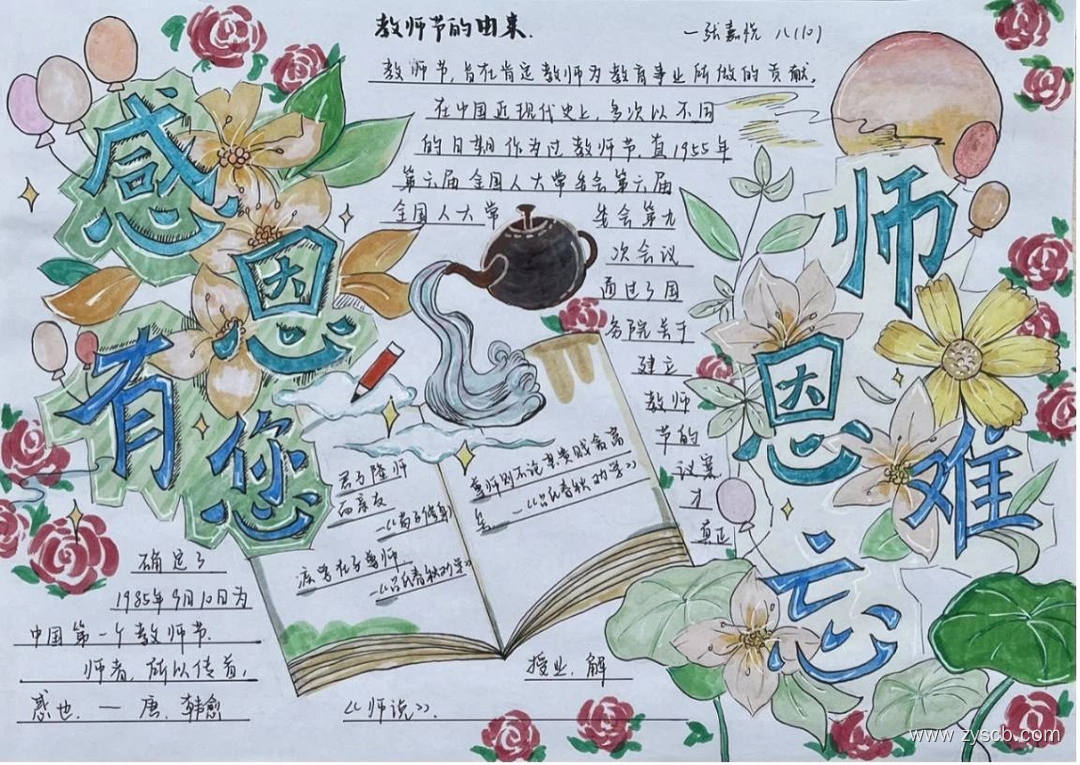 教师节的由来.
一张嘉悦 八(10)
教师节,旨在肯定教师为教育事业所做的贡献。
在中国近现代史上,多次以不同
的日期作为过教师节.直1955年
第六届全国人大常务会第六届
全国人大常 委会第九
次会议
通过了国
务院关于
建立
教师
节的
议案
才
真正
确定了
1985年9月10日为
中国第一个教师节.
师者,所以传道,
授业,解
惑也. 一 唐.韩愈
《师说》.
感恩有您
师恩难忘
君子隆师
而亲友
—《荀子修身》
疾学在于尊师
—《吕氏春秋劝学》
尊师则不论其贵贱贫富
矣 —《吕氏春秋劝学》
www.zyscb.com